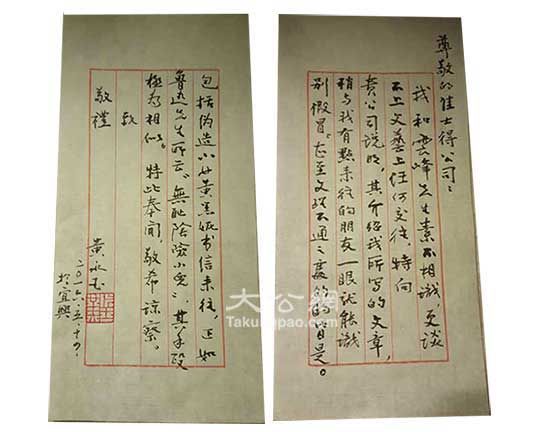 尊敬的佳士得公司：
我和雲峰先生素不相識，更談
不上文藝上任何交往，特向
貴公司說明，其介紹我所寫的文章，
稍与我有點來往的朋友一眼就能識
別假冒。甚至文理不通之處
皆是。
包括伪造小女黃黑妮书信来往，正如
鲁迅先生所云：無耻陰險小兒，其手段
極为相似。特此奉聞，敬希諒察。
致
敬禮
黃永玉
二〇一六·五·十九
於宜興
大公網
Takungpao.com